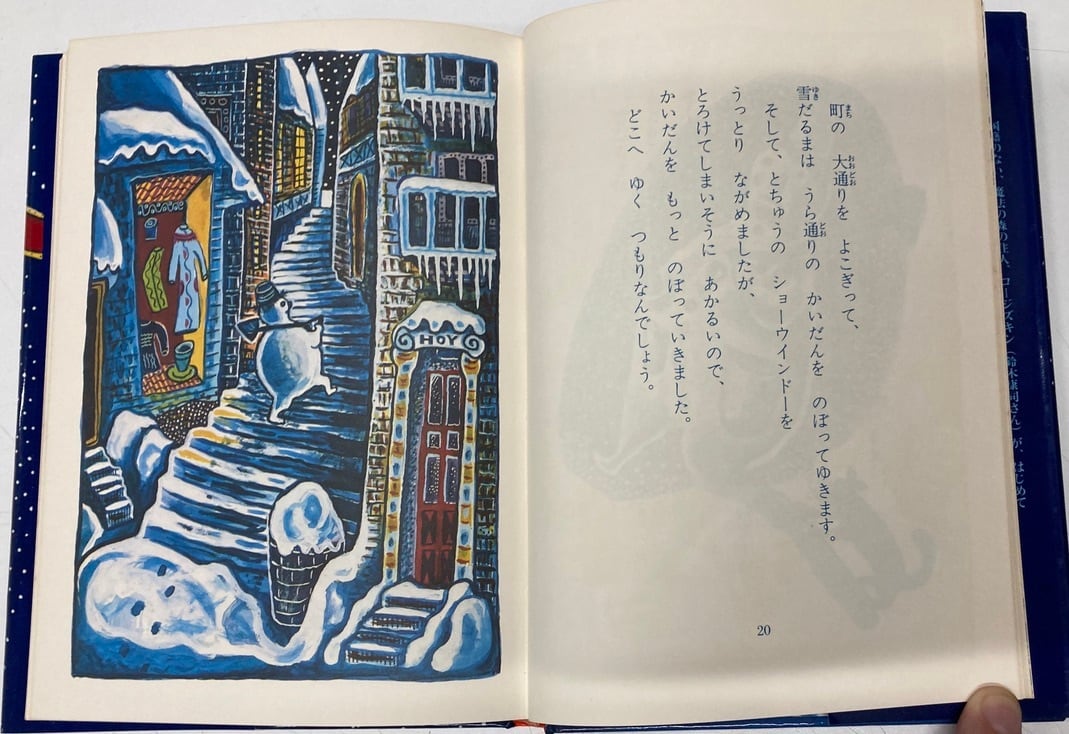 HOY
町の　大通りを　よこぎって、
雪だるまは　うら通りの　かいだんを　のぼってゆきます。
そして、とちゅうの　ショーウインドーを
うっとり　ながめましたが、
とろけてしまいそうに　あかるいので、
かいだんを　もっと　のぼっていきました。
どこへ　ゆく　つもりなんでしょう。
20